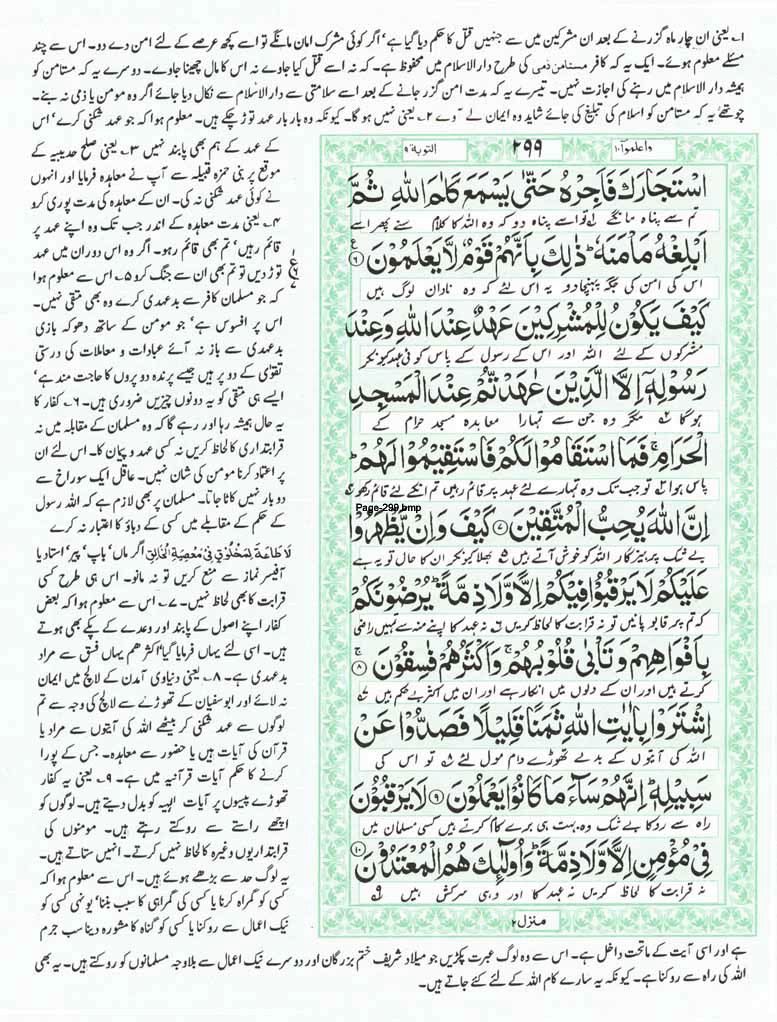 ۱۔ یعنی ان چار ماہ گزرنے کے بعد ان مشرکین میں سے جنہیں قتل کا حکم دیا گیا ہے‘ اگر کوئی مشرک امان مانگے تو اسے کچھ عرصے کے لئے امن دے دو۔ اس سے چند
مسئلے معلوم ہوئے۔ ایک یہ کہ کافر مستامن ذمی کی طرح دارالاسلام میں محفوظ ہے۔ کہ نہ اسے قتل کیا جاوے نہ اس کا مال چھینا جاوے۔ دوسرے یہ کہ مستامن کو
ہمیشہ دار الاسلام میں رہنے کی اجازت نہیں۔ تیسرے یہ کہ مدت امن گزر جانے کے بعد اسے سلامتی سے دارالاسلام سے نکال دیا جائے اگر وہ مومن یا ذمی نہ بنے۔
چوتھے یہ کہ مستامن کو اسلام کی تبلیغ کی جائے شاید وہ ایمان لے آوے ۲۔ یعنی نہیں ہو گا۔ کیونکہ وہ بار بار عہد توڑ چکے ہیں۔ معلوم ہوا کہ جو عہد شکنی کرے‘ اس
واعلموآ۱۰
۲۹۹
التوبة ۹
اسْتَجَارَكَ فَاَجِرْهُ حَتّٰى يَسْمَعَ كَلٰمَ اللّٰهِ ثُمَّ
تم سے پناہ مانگے تو اسے پناہ دو کہ وہ اللہ کا کلام سنے پھر اسے
اَبْلِغْهُ مَاْمَنَهٗ ؕ ذٰلِكَ بِاَنَّهُمْ قَوْمٌ لَّا يَعْلَمُوْنَ ۶
اس کی امن کی جگہ پہنچا دو یہ اس لئے کہ وہ نادان لوگ ہیں
كَيْفَ يَكُوْنُ لِلْمُشْرِكِيْنَ عَهْدٌ عِنْدَ اللّٰهِ وَعِنْدَ
مشرکوں کے لئے اللہ اور اس کے رسول کے پاس کوئی عہد کیونکر
رَسُوْلِهٖٓ اِلَّا الَّذِيْنَ عٰهَدْتُّمْ عِنْدَ الْمَسْجِدِ
ہو گا ۲ مگر وہ جن سے تمہارا معاہدہ مسجد حرام کے
الْحَرَامِ ۚ فَمَا اسْتَقَامُوْا لَكُمْ فَاسْتَقِيْمُوْا لَهُمْ ؕ
پاس ہوا تو جب تک وہ تمہارے لئے عہد پر قائم رہیں تم انکے لئے قائم رہو
Page-299.bmp
اِنَّ اللّٰهَ يُحِبُّ الْمُتَّقِيْنَ ۷ كَيْفَ وَاِنْ يَّظْهَرُوْا
بے شک پرہیزگار اللہ کو خوش آتے ہیں بھلا کیونکر ان کا حال تو یہ ہے
عَلَيْكُمْ لَا يَرْقُبُوْا فِيْكُمْ اِلًّا وَّلَا ذِمَّةً ؕ يُرْضُوْنَكُمْ
کہ تم پر قابو پائیں تو نہ قرابت کا لحاظ کریں نہ عہد کا اپنے منہ سے تمہیں راضی
بِاَفْوَاهِهِمْ وَتَاْبٰى قُلُوْبُهُمْ ۚ وَاَكْثَرُهُمْ فٰسِقُوْنَ ۸
کرتے ہیں اور ان کے دلوں میں انکار ہے اور ان میں اکثر بے حکم ہیں
اِشْتَرَوْا بِاٰيٰتِ اللّٰهِ ثَمَنًا قَلِيْلًا فَصَدُّوْا عَنْ
اللہ کی آیتوں کے بدلے تھوڑے دام مول لئے تو اس کی
سَبِيْلِهٖ ؕ اِنَّهُمْ سَآءَ مَا كَانُوْا يَعْمَلُوْنَ ۹ لَا يَرْقُبُوْنَ
راہ سے روکا بے شک وہ بہت ہی برے کام کرتے ہیں کسی مسلمان میں
فِيْ مُؤْمِنٍ اِلًّا وَّلَا ذِمَّةً ؕ وَاُولٰٓئِكَ هُمُ الْمُعْتَدُوْنَ ۱۰
نہ قرابت کا لحاظ کریں نہ عہد کا اور وہی سرکش ہیں ۹
منزل۲
کے عہد کے ہم بھی پابند نہیں ۳۔ یعنی صلح حدیبیہ کے
موقع پر بنی حمزہ قبیلہ سے آپ نے معاہدہ فرمایا اور انہوں
نے کوئی عہد شکنی نہ کی۔ ان کے معاہدہ کی مدت پوری کرو
۴۔ یعنی مدت معاہدہ کے اندر جب تک وہ اپنے عہد پر
قائم رہیں‘ تم بھی قائم رہو۔ اگر وہ اس دوران میں عہد
توڑ دیں تو تم بھی ان سے جنگ کرو ۵۔ اس سے معلوم ہوا
کہ جو مسلمان کافر سے بدعہدی کرے وہ بھی متقی نہیں۔
اس پر افسوس ہے‘ جو مومن کے ساتھ دھوکہ بازی
بدعہدی سے باز نہ آئے عبادات و معاملات کی درستی
تقویٰ کے دو پر ہیں جیسے پرندہ دو پروں کا حاجت مند ہے‘
ایسے ہی متقی کو یہ دونوں چیزیں ضروری ہیں۔ ۶۔ کفار کا
یہ حال ہمیشہ رہا اور رہے گا کہ وہ مسلمان کے مقابلہ میں نہ
قرابتداری کا لحاظ کریں نہ کسی عہد و پیمان کا۔ اس لئے ان
پر اعتماد کرنا مومن کی شان نہیں۔ عاقل ایک سوراخ سے
دو بار نہیں کاٹا جاتا۔ مسلمان پر بھی لازم ہے کہ اللہ رسول
کے حکم کے مقابلے میں کسی کے دباؤ کا اعتبار نہ کرے
لَا طَاعَةَ لِمَخْلُوْقٍ فِيْ مَعْصِيَةِ الْخَالِقِ اگر ماں‘ باپ‘ پیر‘ استاد یا
آفیسر نماز سے منع کریں تو نہ مانو۔ اس ہی طرح کسی
قرابت کا بھی لحاظ نہیں۔ ۷۔ اس سے معلوم ہوا کہ بعض
کفار اپنے اصول کے پابند اور وعدے کے پکے بھی ہوتے
ہیں۔ اسی لئے یہاں فرمایا گیا‘ اکثرھم یہاں فسق سے مراد
بدعہدی ہے۔ ۸۔ یعنی دنیاوی آمدن کے لالچ میں ایمان
نہ لائے اور ابوسفیان کے تھوڑے سے لالچ کی وجہ سے تم
لوگوں سے عہد شکنی کر بیٹھے اللہ کی آیتوں سے مراد یا
قرآن کی آیات ہیں یا حضور سے معاہدہ۔ جس کے پورا
کرنے کا حکم آیات قرآنیہ میں ہے۔ ۹۔ یعنی یہ کفار
تھوڑے پیسوں پر آیات الٰہیہ کو بدل دیتے ہیں۔ لوگوں کو
اچھے راستے سے روکتے رہتے ہیں۔ مومنوں کی
قرابتداریوں وغیرہ کا لحاظ نہیں کرتے۔ انہیں ستاتے ہیں۔
یہ لوگ حد سے بڑھے ہوئے ہیں۔ اس سے معلوم ہوا کہ
کسی کو گمراہ کرنا یا کسی کی گمراہی کا سبب بننا‘ یونہی کسی کو
نیک اعمال سے روکنا یا کسی کو گناہ کا مشورہ دینا سب جرم
ہے اور اسی آیت کے ماتحت داخل ہے۔ اس سے وہ لوگ عبرت پکڑیں جو میلاد شریف ختم بزرگان اور دوسرے نیک اعمال سے بلاوجہ مسلمانوں کو روکتے ہیں۔ یہ بھی
اللہ کی راہ سے روکنا ہے۔ کیونکہ یہ سارے کام اللہ کے لئے کئے جاتے ہیں۔